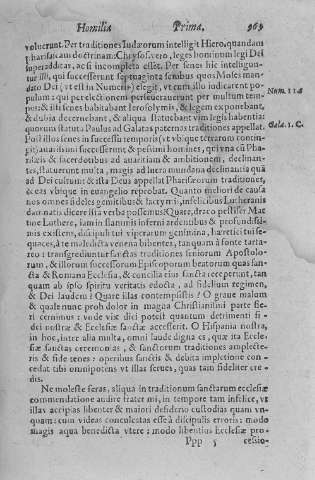 Homilia Prima. 969
voluerunt. Per traditiones Iudæorum intelligit Hiero. quandam
pharisaicam doctrinam: Chrysost. vero, leges hominum legi Dei
superadditas, ac si incompleta esset. Per senes hic intelligun-
tur illi, qui successerunt septuaginta senibus quos Moses man-
dato Dei (vt est in Numeris) elegit, vt cum illo iudicarent po-
Num. 11.4
pulum: qui per electionem perseuerauerunt per multum tem-
pus: & illi senes habitabant Ierosolymis, & legem exponebant,
& dubia decernebant, & aliqua statuebant vim legis habentia:
quorum statuta Paulus ad Galatas paternas traditiones appellat.
Gala. 1. C.
Post illos senes in successu temporis (vt vbique terrarum contin-
git) auarissimi successerunt & pessimi homines, qui vna cũ Pha-
risæis & sacerdotibus ad auaritiam & ambitionem, declinan-
tes, statuerunt multa, magis ad lucra mundana declinantia quã
ad Dei cultum: & ista Deus appellat Pharisæorum traditiones,
& eas vbique in euangelio reprobat. Quanto meliori de causa
nos omnes fideles gemitibus & lacrymis, infelicibus Lutheranis
damnatis dicere ista verba possemus: Quare, draco pestifer Mar
tine Luthere, iam in flammis inferni ardentibus & profundissi-
mis existens, discipuli tui viperarum genimina, hæretici tui se-
quaces, à te maledicta venena bibentes, tanquam à fonte tarta-
reo: transgrediuntur sanctas traditiones seniorum Apostolo-
rum, & illorum successorum Episcoporum beatorum quas san-
cta & Romana Ecclesia, & concilia eius sancta receperunt, tan
quam ab ipso spiritu veritatis edocta, ad fidelium regimen,
& Dei laudem? Quare illas contempsistis? O graue malum
& quale nunc proh dolor in magna Christianissimi parte fie-
ri cernimus: vnde vix dici poterit quantum detrimenti fi-
dei nostræ & Ecclesiæ sanctæ accesserit. O Hispania nostra,
in hoc, inter alia multa, omni laude digna es, quæ ita Eccle-
siæ sanctas ceremonias, & sanctorum traditiones amplecte-
ris & fide tenes: operibus sanctis & debita impletione con-
cedat tibi omnipotens vt illas serues, quas tam fideliter cre-
dis.
Ne moleste feras, aliqua in traditionum sanctarum ecclesiæ
commendatione audire frater mi, in tempore tam infelice, vt
illas accipias libenter & maiori desiderio custodias quam vn-
quam: cum videas conculcatas esse à discipulis erroris: modo
magis aqua benedicta vtere: modo libentius Ecclesiæ pro-
Ppp 5 cessio-